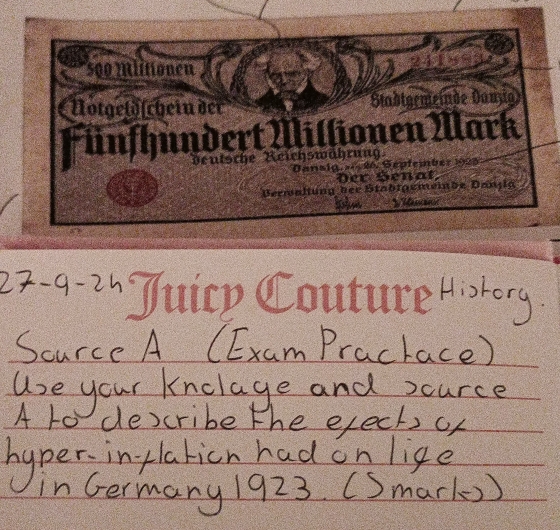 500 Millionen
Notgeldschein der Stadtgemeinde Danzig
Fünfhundert Millionen Mark
deutsche Reichswährung.
Danzig, September
Der Senat,
Verwaltung der Stadtgemeinde Danzig
27-9-24 Juicy Couture History.
Source A (Exam Practace)
Use your knclage and source
A to describe the efects of
hyper-in-flation had on life
in Germany 1923. (5marks)